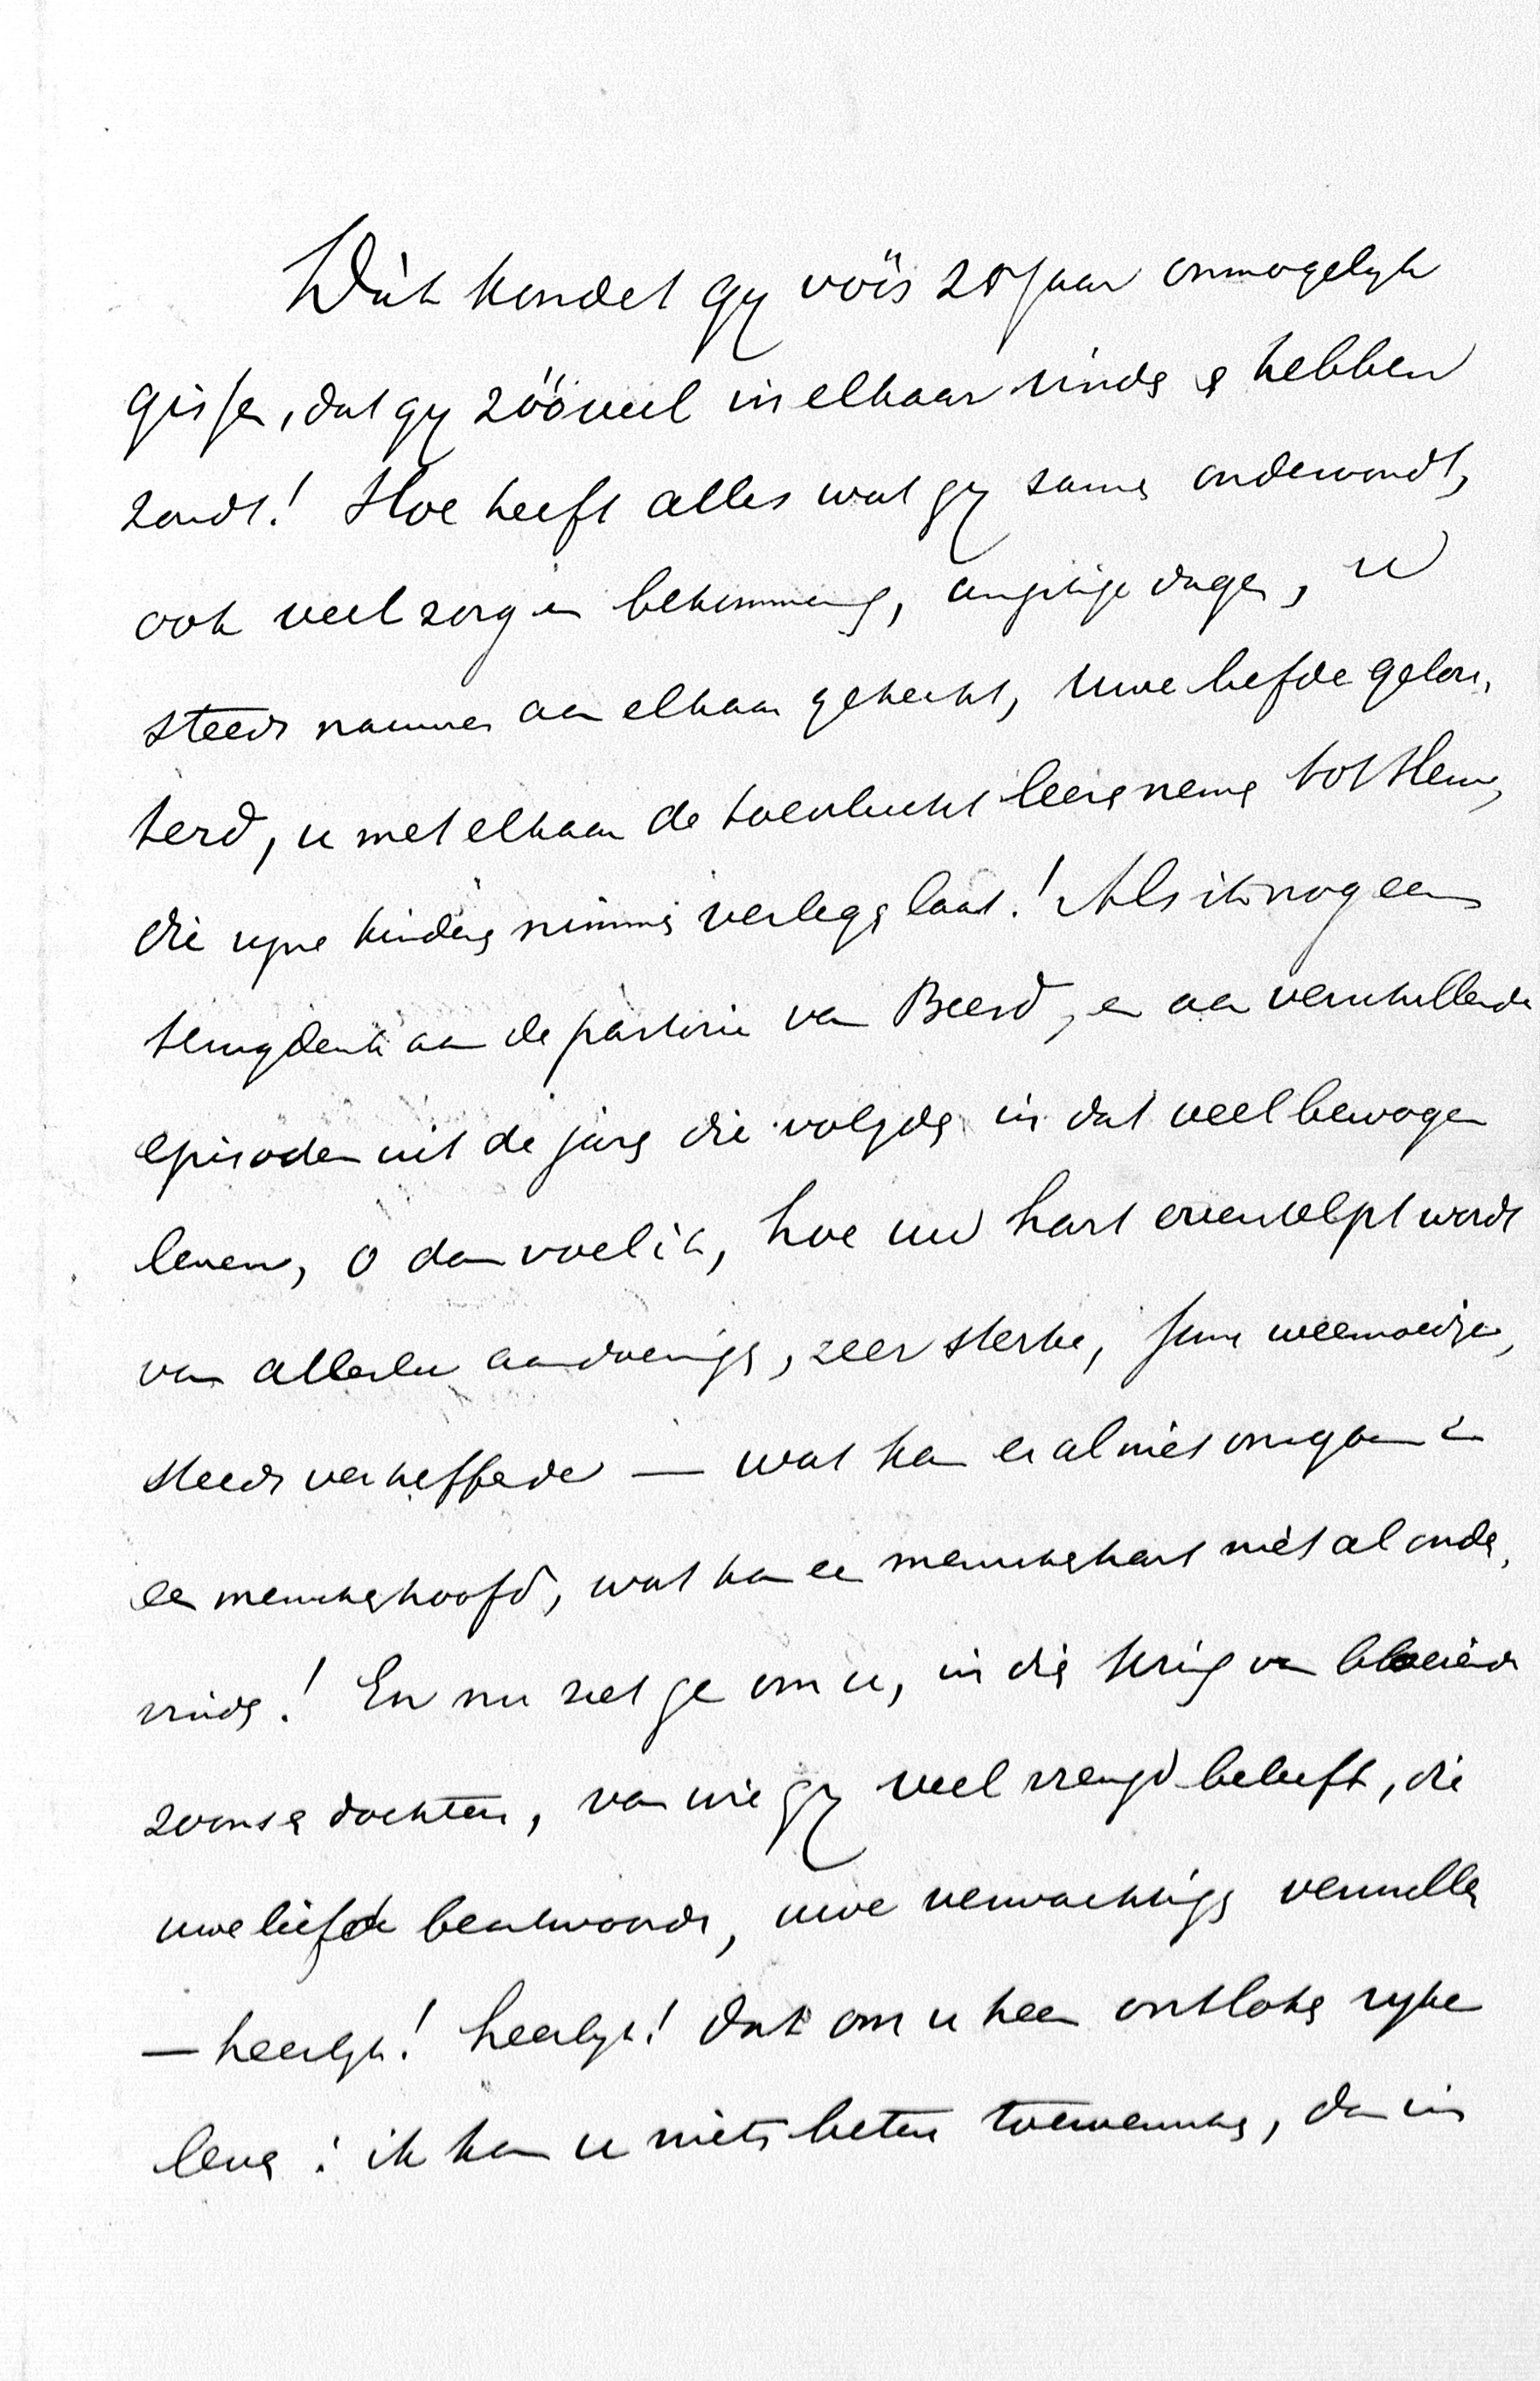 Dát kondet gy vóór 25 jaar onmogelyk
gissen, dat gy zóóveel in elkaar vinden en hebben
zoudt! Hoe heeft alles wat gy samen ondervondt,
ook veel zorg en bekommering, angstige dagen, u
steeds nauwer aan elkaar gehecht, uwe liefde gelou-
terd, u met elkaar de toevlucht leeren nemen tot Hem,
die zyne kinderen nimmer verlegen laat! Als ik nog eens
terugdenk aan de pastorie van Beesd, en aan verschillende
episoden uit de jaren die volgden in dat veelbewogen
leven, o dan voel ik, hoe uw hart overstelpt wordt
van allerlei aandoeningen, zeer sterke, soms weemoedige,
steeds verheffende — wat kan er al niet omgaan in
een menschenhoofd, wat kan een menschenhart niet al onder-
vinden! En nu ziet ge om u, in dien kring van bloeiende
zoons en dochters, van wie gy veel vreugd beleeft, die
uwe liefde beantwoorden, uwe verwachtingen vervullen
— heerlyk! heerlyk! dat om u heen ontloken ryke
leven: ik kan u niets beters toewenschen, dan in